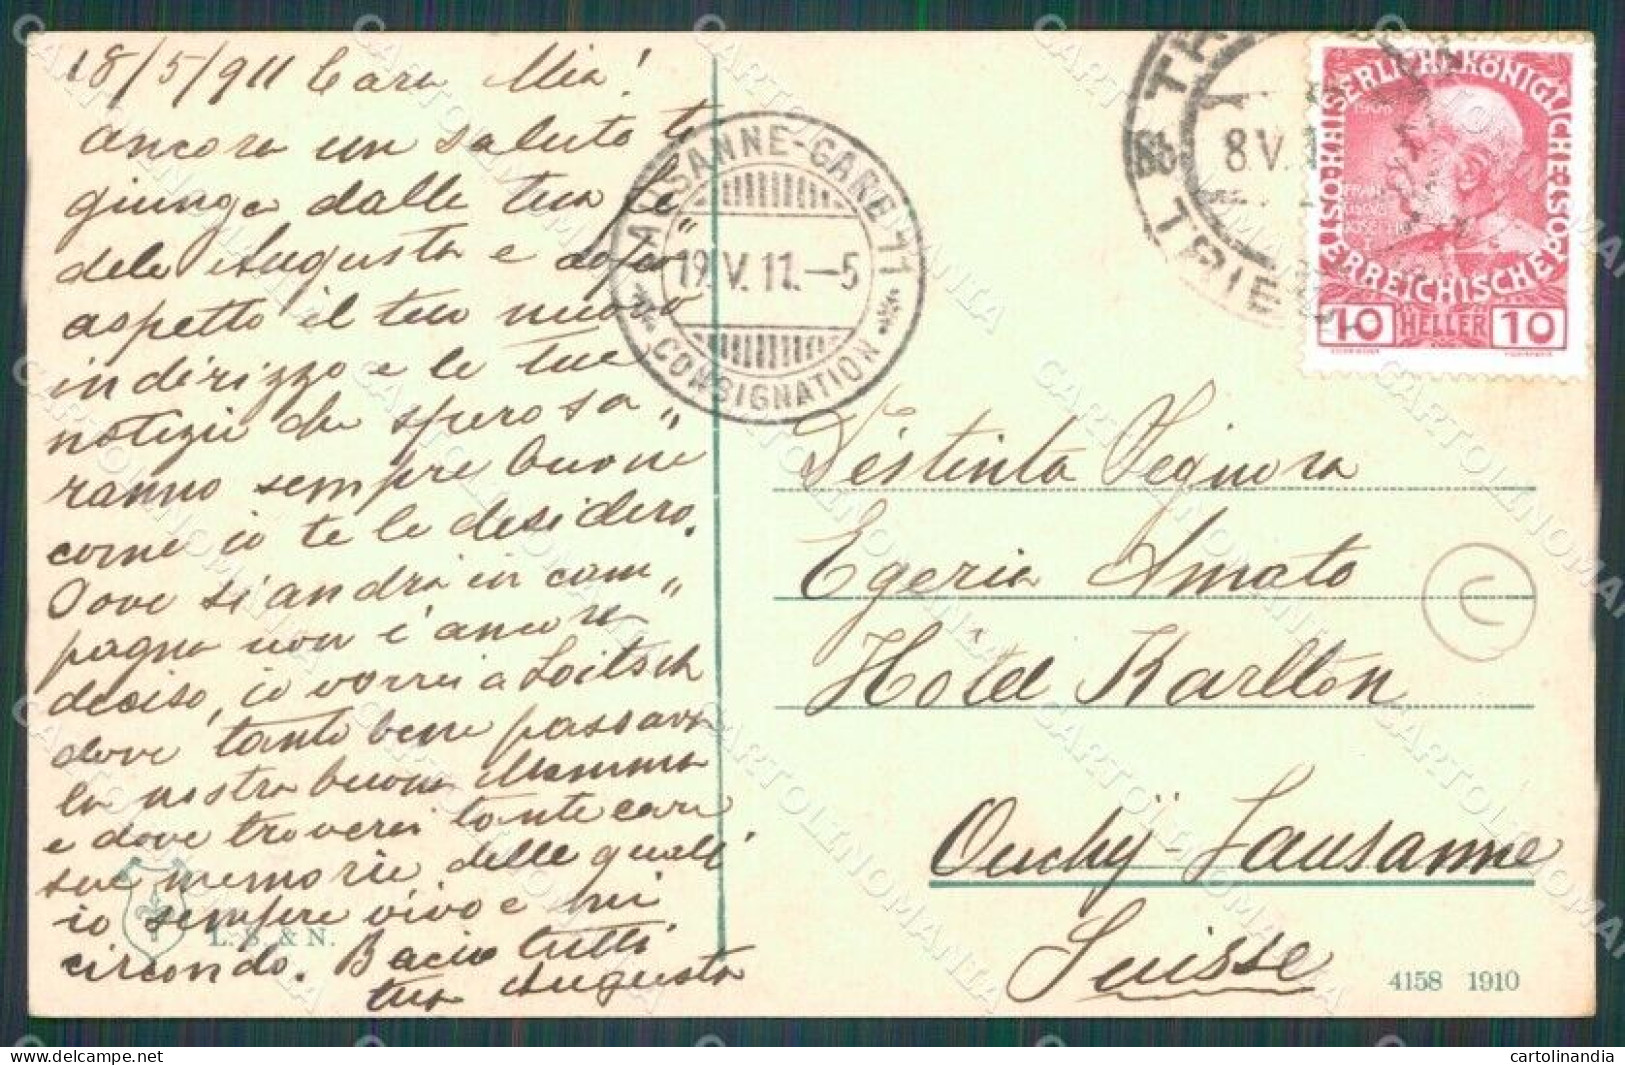 18/5/911 Cara Mia!
ancora un saluto ti
giunga dalla tua fe„
dele Augusta e dopo
aspetto il tuo nuovo
indirizzo e le tue
notizie che spero sa„
ranno sempre buone
come io te le desidero.
Dove si andrà in cam„
pagna non è ancora
deciso, io vorrei a Loitsch
dove tanto bene passava
la nostra buona Mamma
e dove troverei tante care
sue memorie delle quali
io sempre vivo e mi
circondo. Bacio tutti
tua Augusta
L. S. & N.
LAUSANNE-GARE 11
19.V.11.-5
CONSIGNATION
8.V.
TRIEST
KAISERLICHE KÖNIGLICHE ÖSTERREICHISCHE POST
1908
FRANZ
JOSEPH
I
10 HELLER 10
Distinta Signora
Egeria Amato
Hôtel Karlton
Ouchÿ Lausanne
Suisse
4158 1910
CARTOLINOMANIA
Delcampe.net
cartolinandia